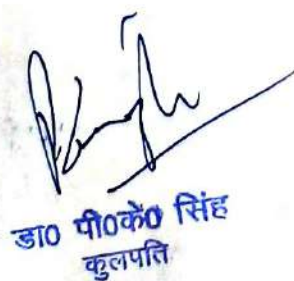 डा0 पी0कें0 सिंह
कुलपति